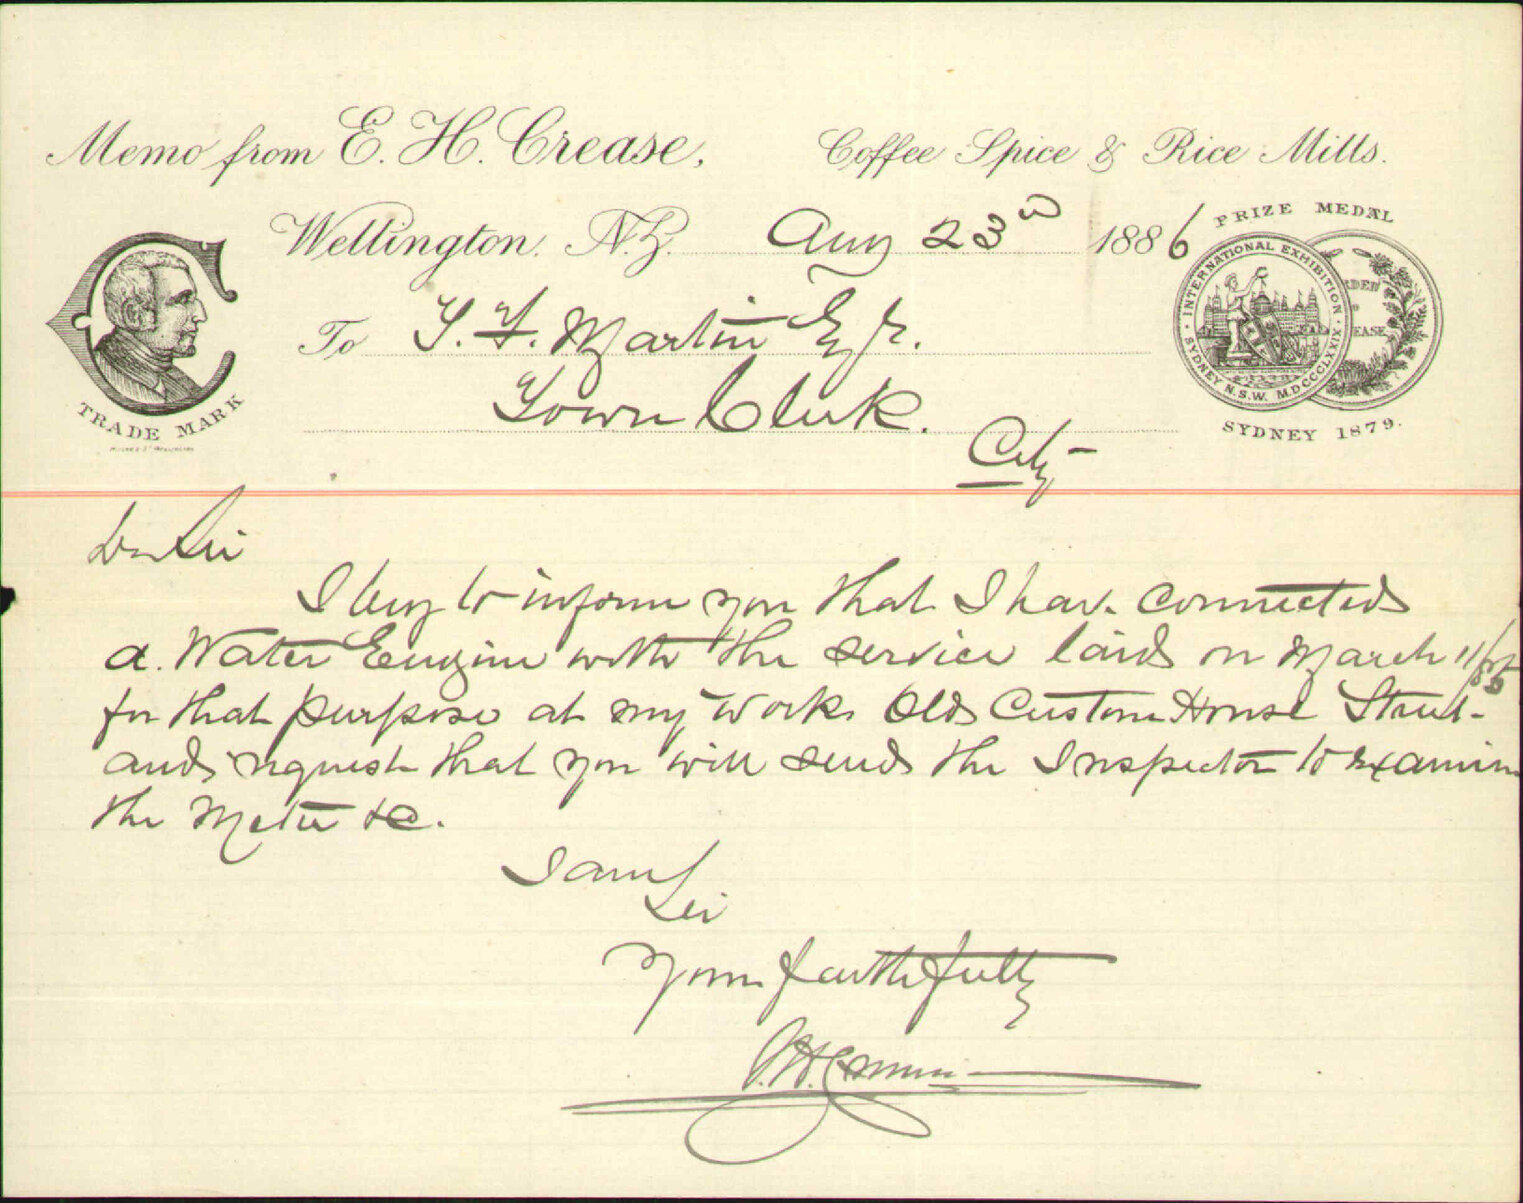 Memo from E. H. Crease, Coffee Spice & Rice Mills.
Wellington, N.Z. Aug 23rd 1886
PRIZE MEDAL
INTERNATIONAL EXHIBITION
SYDNEY N.S.W. MDCCCLXXIX
RDED
EASE
SYDNEY 1879.
TRADE MARK
To F. F. Martin Esqr.
Town Clerk.
City
Dear Sir
I beg to inform you that I have connected
a Water Engine with the service laid on March 11/
for that purpose at my works Old Custom House Street
and request that you will send the Inspector to examine
the Meter &c.
I am
Sir
Yours faithfully